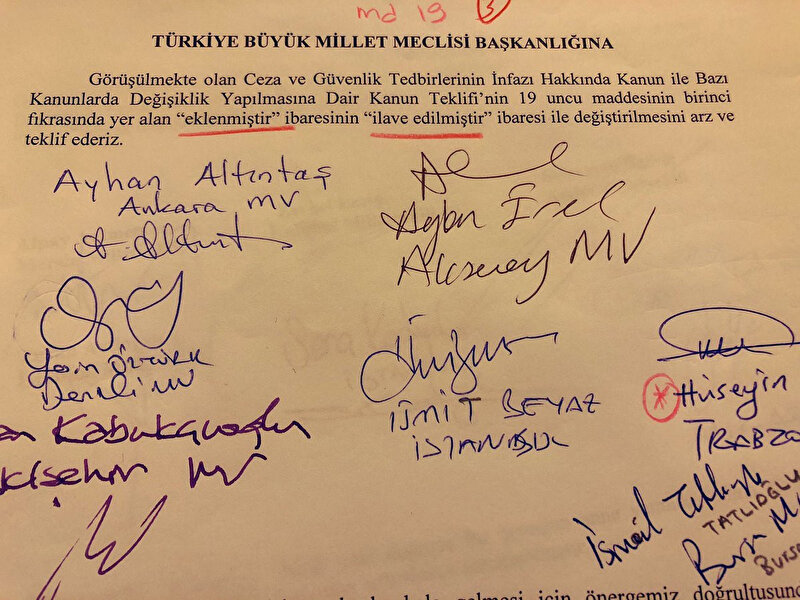 md 19 3
TÜRKİYE BÜYÜK MİLLET MECLİSİ BAŞKANLIĞINA
Görüşülmekte olan Ceza ve Güvenlik Tedbirlerinin İnfazı Hakkında Kanun ile Bazı
Kanunlarda Değişiklik Yapılmasına Dair Kanun Teklifi’nin 19 uncu maddesinin birinci
fıkrasında yer alan “eklenmiştir” ibaresinin “ilave edilmiştir” ibaresi ile değiştirilmesini arz ve
teklif ederiz.
Ayhan Altıntaş
Ankara MV
Ayhan Erel
Aksaray MV
Yasin Öztürk
Denizli MV
ÜMİT BEYAZ
İSTANBUL
Hüseyin
TRABZO
Kabukcuoğlu
kişehir MV
İsmail
TATLIOĞLU
Bursa
gelmesi için önergemiz doğrultusund